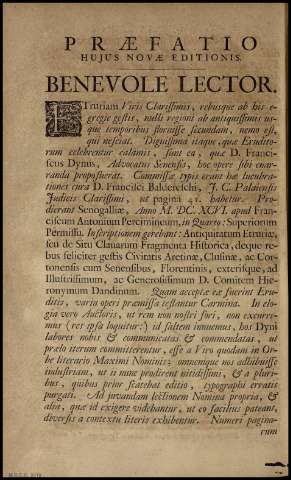 PRÆFATIO
HUJUS NOVÆ EDITIONIS.
BENEVOLE LECTOR.
ETruriam Viris Clarissimis, rebusque ab his e-
gregie gestis, nulli regioni ab antiquissimis us-
que temporibus floruisse secundam, nemo est,
qui nesciat. Dignissima itaque, quæ Erudito-
rum celebrentur calamis, sunt ea, quæ D. Franci-
scus Dynus, Advocatus Senensis, hoc opere sibi enar-
randa proposuerat. Commissæ typis erant hæ lucubra-
tiones cura D. Francisci Baldereschi, J. C. Palaiensis
Judicis Clarissimi, ut pagina 41. habetur. Pro-
dierant Senogalliæ, Anno M. DC. XCVI. apud Fran-
ciscum Antonium Percimineum, in Quarto: Superiorum
Permissu. Inscriptionem gerebant: Antiquitatum Etruriæ,
seu de Situ Clanarum Fragmenta Historica, deque rebus
feliciter gestis Civitatis Aretinæ, Clusinæ, ac Cor-
tonensis cum Senensibus, Florentinis, exterisque, ad
Illustrissimum, ac Generosissimum D. Comitem Hie-
ronymum Dandinum. Quam acceptæ eæ fuerint Eru-
ditis, varia operi præmissa testantur Carmina. In elo-
gia vero Auctoris, ut rem non nostri fori, non excurre-
mus (res ipsa loquitur:) id saltem innuemus, hos Dyni
labores nobis & communicatas & commendatas, ut
prælo iterum committerentur, esse a Viro quodam in Or-
be literario Maximi Nominis: omnemque nos adhibuisse
industriam, ut ii nunc prodirent nitidissimi, & a pluri-
bus, quibus prior scatebat editio, typographi erratis
purgati. Ad juvandam lectionem Nomina propria, &
alia, quæ id exigere videbantur, ut eo facilius pateant,
diversis a contextu literis exhibentur. Numeri pagina-
rum